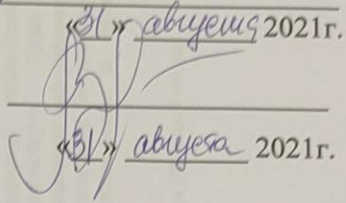 «31» августа 2021г.
«31» августа 2021г.